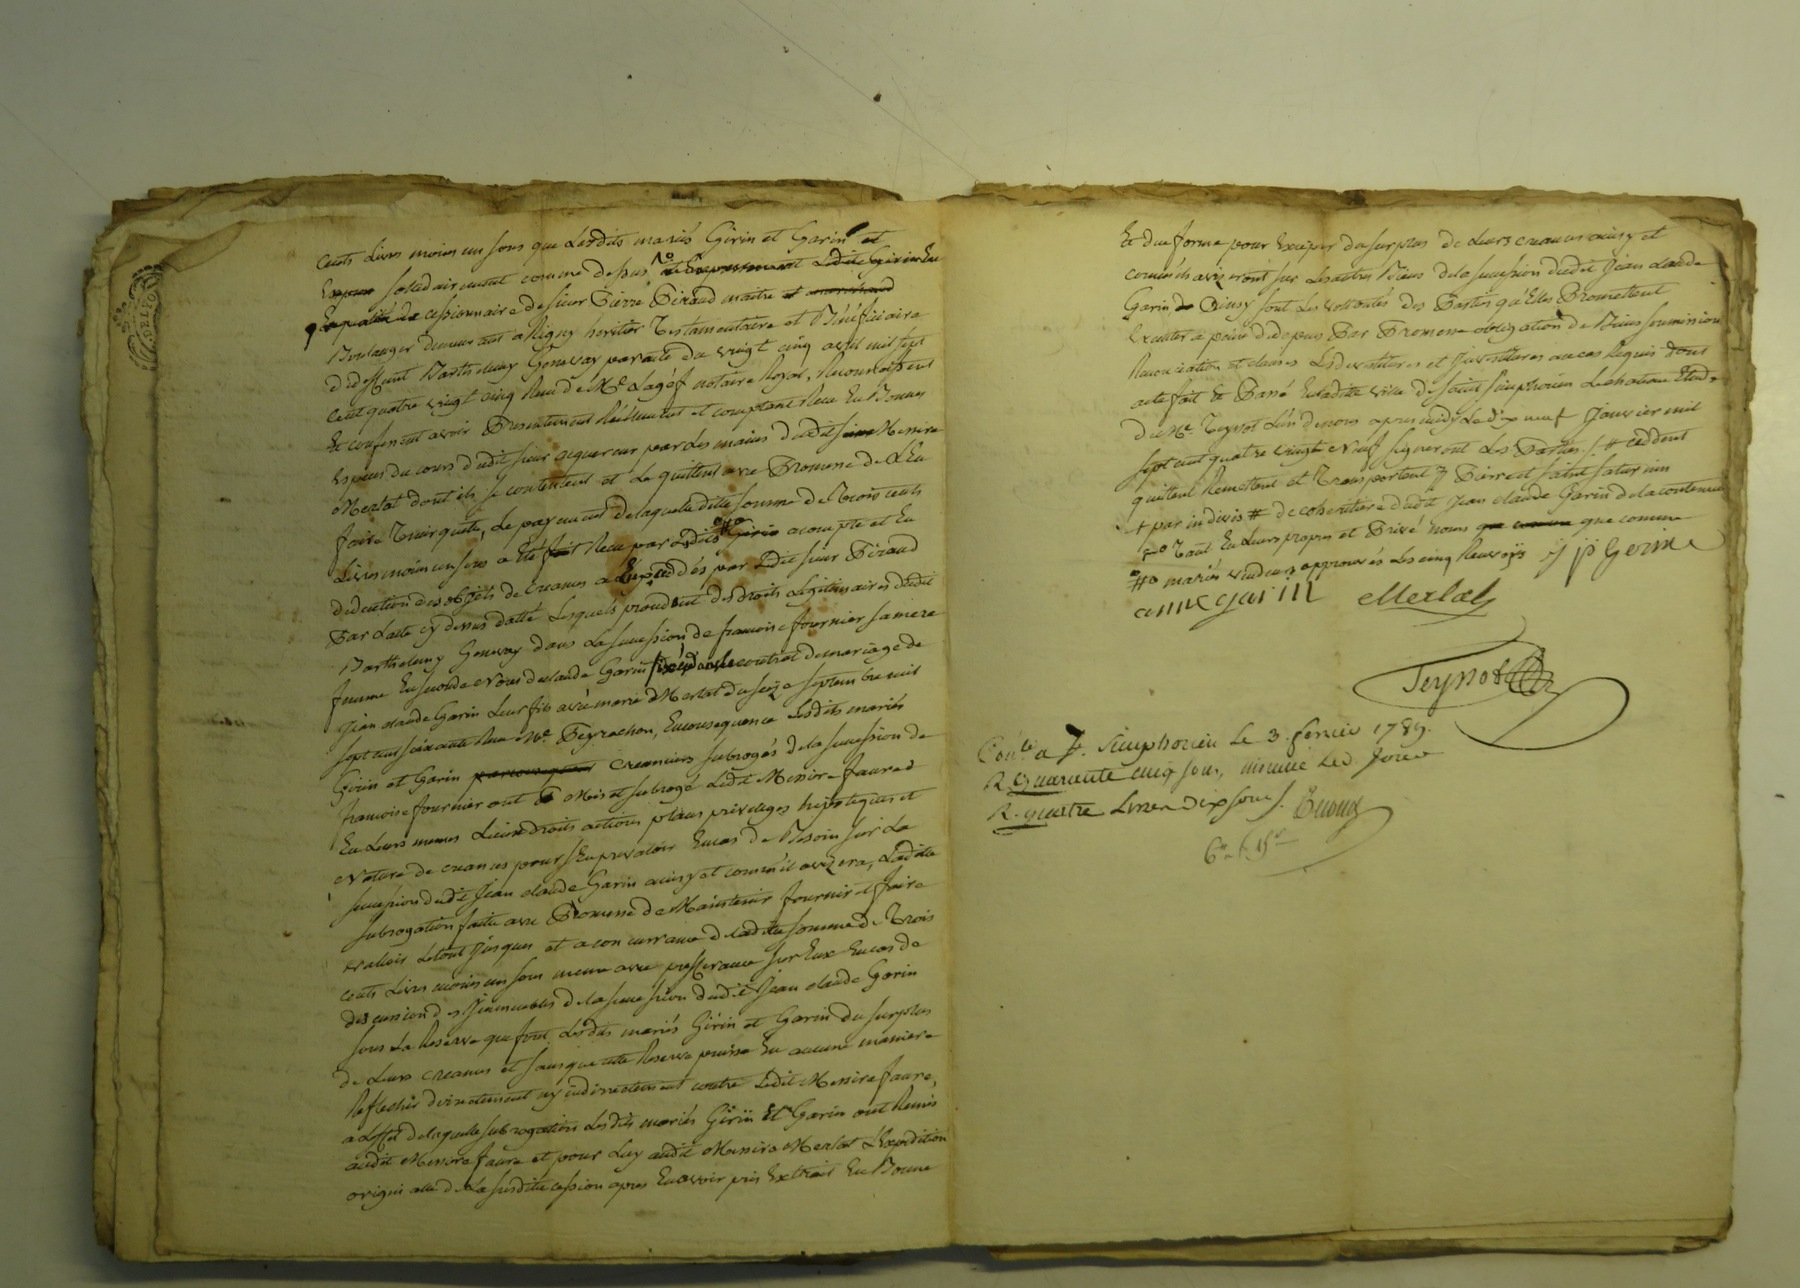 cents Livres moins un sous que Lesdits mariés Girin et Garin et
solidairement comme dessus Ledit Girin En
qualité de cessionnaire de sieur Pierre Piraud maitre et marchand
Boulanger demeurant a Rigny heritier Testamentaire et Bénéficiaire
dudeffunt Barthelemy Genevay par acte du vingt cinq avril mil sept
cent quatre vingt cinq Recu de Me Lagés notaire Royal, Reconnoissent
Et confessent avoir Presentement Réellement et comptant Recu En Bonnes
Especes du cours dudit sieur acquereur par Les mains dudit Messire
Merlat dont ils se contentent et Le quittent avec Promesse de L'En
faire Tenir quitte, Le payement de laquelle ditte somme de Trois cents
Livres moins un sous a été Recu par Lesdits a compte et En
deduction des objets de creances cedés par Ledit sieur Piraud
Par L'acte cy dessus datté Lesquels procedent des droits Legitimaires dudit
Barthelemy Genevay dans La succession de francoise fournier sa mere
femme En secondes Noces de claude Garin fixés dans le contrat de mariage de
Jean claude Garin Leur fils avec marie Merlat du seize septembre mil
sept cent soixante Recu Me Peyrachon, En consequence Lesdits mariés
Girin et Garin creanciers subrogés de la succession de
francoise fournier ont Mis et subrogé Ledit Messire faure
En Leurs memes Lieu droits actions places privileges hipoteques et
Nature de creances pour s'En prevaloir En cas de Besoin sur La
succession dudit Jean claude Garin ainsy et comm'il avizera, Laditte
subrogation faitte avec Promesse de Maintenir fournir et faire
valloir Le tout Jusques et a concurrance de laditte somme de Trois
cents Livres moins un sous meme avec prefferance sur Eux En cas de
discussion des Immeubles de la succession dudit Jean claude Garin
sous La Reserve que font Lesdits mariés Girin et Garin du surplus
de Leurs creances et sans que cette Reserve puisse En aucune maniere
Reflechir directement ny indirectement contre Ledit Messire faure,
a L'effet de laquelle subrogation Lesdits mariés Girin Et Garin ont Remis
audit Messire faure et pour Luy audit Messire Merlat L'Expedition
originalle de La susditte cession apres En avoir pris Extrait En Bonne
Et due forme pour Exciper du surplus de Leurs creances ainsy et
comm'ils avizeront sur Les autres Biens de la succession dudit Jean claude
Garin Ainsy sont Les volontés des Parties qu'Elles Promettent
Executer a peine de depens Par Promesse obligation de Biens soumission
Renonciation et clauses Les devettures et Investitures au cas Requis dont
acte fait Et Passé En ladite ville de saint simphorien Lechateau Etude
de Me Teyssot L'un de nous apres midy Le dix neuf Janvier mil
sept cent quatre vingt Neuf signeront Les Parties ./. # ceddent
quittent Remettent et Transportent
+ par indivis # de coheritiere dudit Jean claude Garin de la contenue
Tant En Leurs propres et Privé noms que comme
#o mariés vendeurs approuvés Les cinq Renvoys J p Gerine
anne garin Merlat
Teyssot
Conlé a St. Simphorien Le 3. fevrier 1789.
R. Quarante cinq sous, insinué Led. Jour
R. quatre Livres Dix sous /.